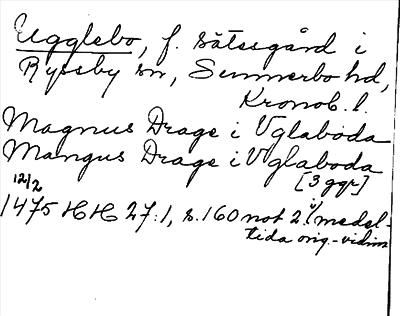 Ugglebo, f. sätesgård i
Ryssby sn, Sunnerbo hd,
Kronob. l.
Magnus Drage i Vglaboda
Mangus Drage i Vglaboda
[3 ggr]
12/2
1475 HH 27:1, s. 160 not 2 i/ medel-
tida orig.-vidim